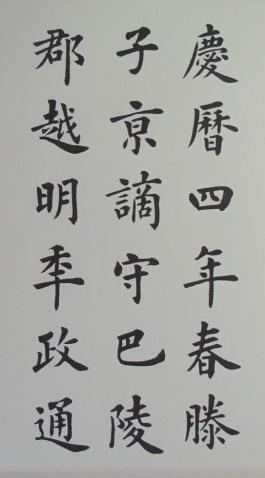 慶曆四年春滕
子京謫守巴陵
郡越明年政通